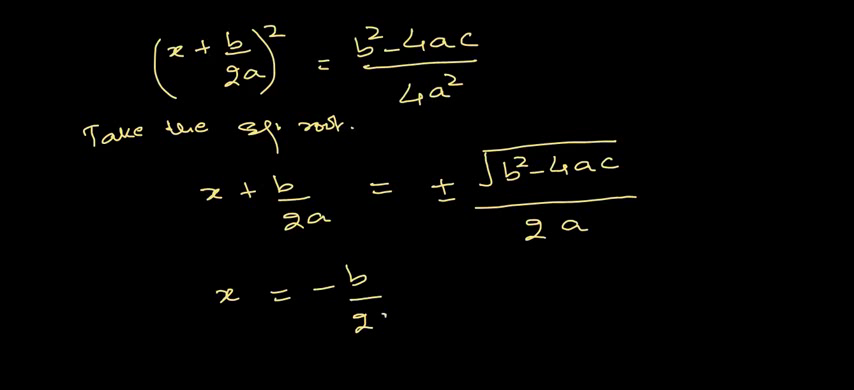 (x + b/2a)² = b² - 4ac/4a²
Take the sq. root.
x + b/2a = ± √b² - 4ac/2a
x = - b/2